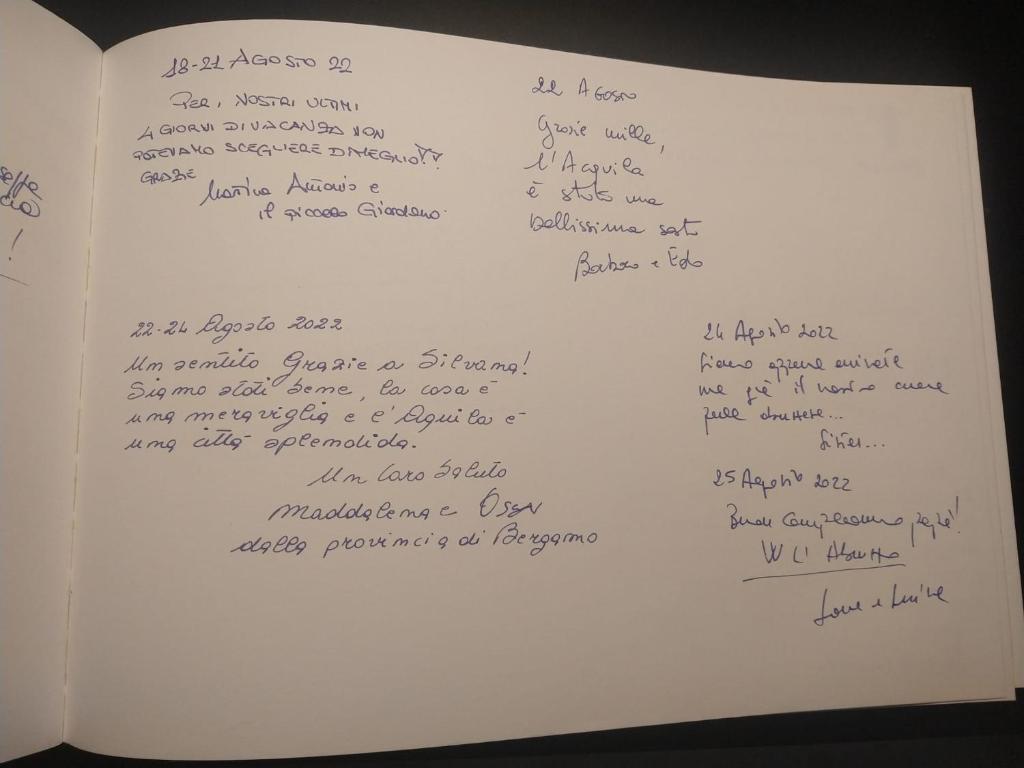 18-21 AGOSTO 22
PER I NOSTRI ULTIMI
4 GIORNI DI VACANZA NON
POTEVAMO SCEGLIERE DI MEGLIO!!
GRAZIE
Martina Antonio e
il piccolo Giordano.
22 AGOSTO
Grazie mille,
l'Acquila
è stata una
bellissima
Barbara e Edo
22-24 Agosto 2022
Un sentito Grazie a Silvana!
Siamo stati bene, la casa è
una meraviglia e l'Aquila è
una città splendida.
Un Caro Saluto
Maddalena e
dalla provincia di Bergamo
24 Agosto 2022
Siamo appena arrivate
ma già il nostro cuore
25 Agosto 2022
Buon Compleanno papà!
W L'Abruzzo
e
!